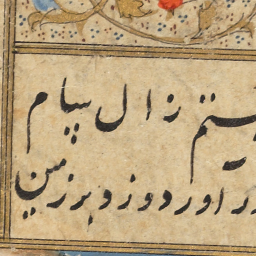 رستم زال پیام
در آورد و زد بر زمین